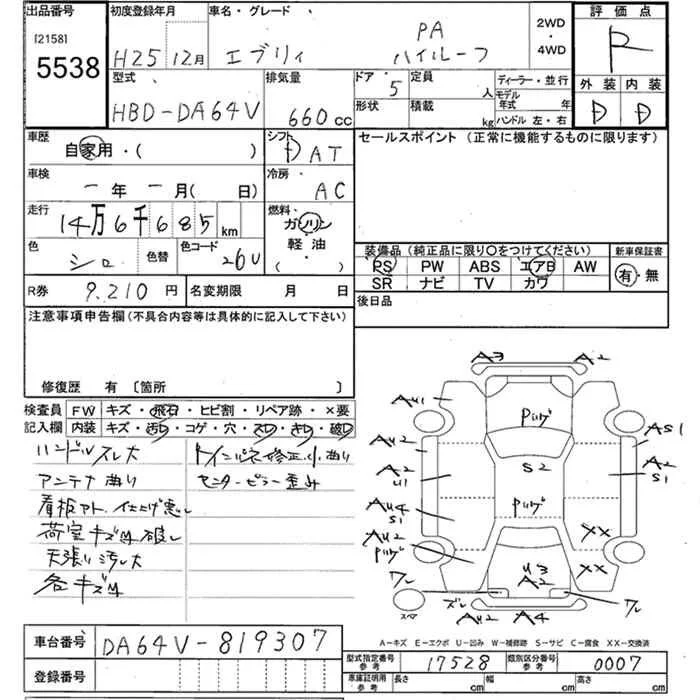 出品番号 初度登録年月 車名・グレード 評価点
[2158] PA 2WD
5538 H25 12月 エブリィ ハイルーフ ・4WD R
型式 排気量 ドア 5 定員 人 ディーラー・並行 外装 内装
HBD-DA64V 660cc 形状 積載 kg モデル年式 年 D D
ハンドル 左・右
車歴 シフト セールスポイント (正常に機能するものに限ります)
自家用・( ) DAT
車検 冷房
一年一月(日) AC
走行 燃料
14万6千685km ガソリン
色 シロ 色替 色コード 26U 軽油 ( )
装備品(純正品に限り○をつけてください) 新車保証書
PS PW ABS エアB AW 有・無
SR ナビ TV カワ
R券 9,210円 名変期限 月 日 後日品
注意事項申告欄(不具合内容等は具体的に記入して下さい)
修復歴 有 〔箇所 〕
検査員 FW キズ・飛石・ヒビ割・リペア跡・×要
記入欄 内装 キズ・汚れ・コゲ・穴・スレ・キレ・破れ
ハンドルスレ大 トインパネ修正小曲り
アンテナ曲り センターピラー歪み
看板アト、仕上げ悪い
荷室キズ凹破れ
天張り汚レ大
各キズ凹
A3 A2
AU1
Pリンゲ
AU2 AS1
A2 U1 S2 A2 S1
AU4 S1 Pリンゲ
AU2 Pリンゲ XX
U3 A2 XX
ワレ ワレ
スマ ズレ AU2 A4
A-キズ E-エクボ U-凹み W-補修跡 S-サビ C-腐食 XX-交換済
車台番号 DA64V-819307
型式指定番号 参考 17528 類別区分番号 参考 0007
登録番号
車庫証明用 参考 長さ cm 幅 cm 高さ cm